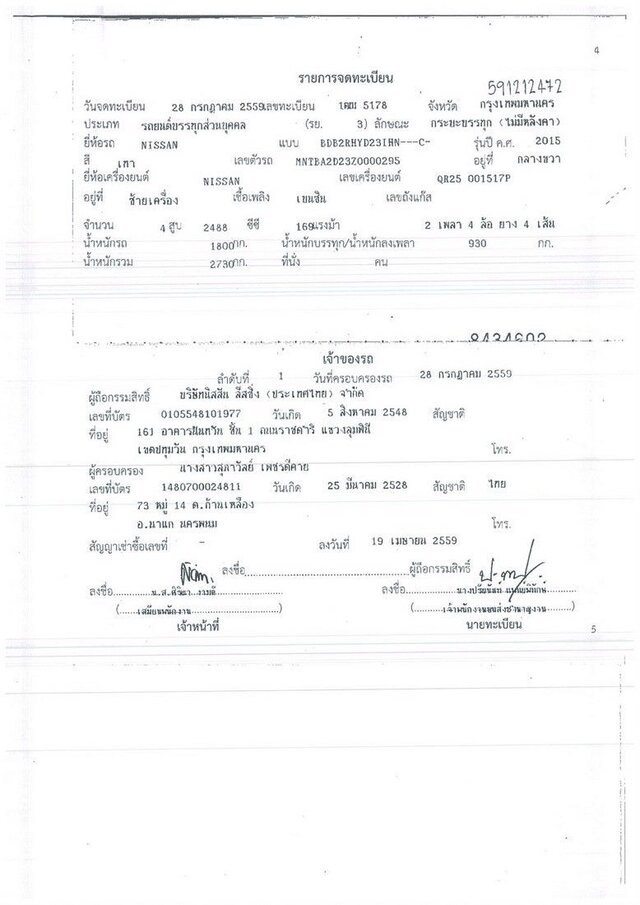 4
รายการจดทะเบียน
591212472
วันจดทะเบียน 28 กรกฎาคม 2559 เลขทะเบียน 1ฒฌ 5178 จังหวัด กรุงเทพมหานคร
ประเภท รถยนต์บรรทุกส่วนบุคคล (รย. 3) ลักษณะ กระบะบรรทุก (ไม่มีหลังคา)
ยี่ห้อรถ NISSAN แบบ BDB2RHYD23IHN---C- รุ่นปี ค.ศ. 2015
สี เทา เลขตัวรถ MNTBA2D23Z0000295 อยู่ที่ กลางขวา
ยี่ห้อเครื่องยนต์ NISSAN เลขเครื่องยนต์ QR25 001517P
อยู่ที่ ซ้ายเครื่อง เชื้อเพลิง เบนซิน เลขถังแก๊ส
จำนวน 4 สูบ 2488 ซีซี 169 แรงม้า 2 เพลา 4 ล้อ ยาง 4 เส้น
น้ำหนักรถ 1800 กก. น้ำหนักบรรทุก/น้ำหนักลงเพลา 930 กก.
น้ำหนักรวม 2730 กก. ที่นั่ง คน
8434602
เจ้าของรถ
ลำดับที่ 1 วันที่ครอบครองรถ 28 กรกฎาคม 2559
ผู้ถือกรรมสิทธิ์ บริษัทนิสสัน ลีสซิ่ง (ประเทศไทย) จำกัด
เลขที่บัตร 0105548101977 วันเกิด 5 สิงหาคม 2548 สัญชาติ
ที่อยู่ 161 อาคารนันทวัน ชั้น 1 ถนนราชดำริ แขวงลุมพินี
เขตปทุมวัน กรุงเทพมหานคร โทร.
ผู้ครอบครอง นางสาวสุภาวัลย์ เพชรดีคาย
เลขที่บัตร 1480700024811 วันเกิด 25 มีนาคม 2528 สัญชาติ ไทย
ที่อยู่ 73 หมู่ 14 ต.ก้านเหลือง
อ.นาแก นครพนม โทร.
สัญญาเช่าซื้อเลขที่ - ลงวันที่ 19 เมษายน 2559
ลงชื่อ........ผู้ถือกรรมสิทธิ์
ลงชื่อ........ ลงชื่อ........
(........เสมียนพนักงาน........) (........เจ้าพนักงานขนส่งชำนาญงาน........)
เจ้าหน้าที่ นายทะเบียน
5